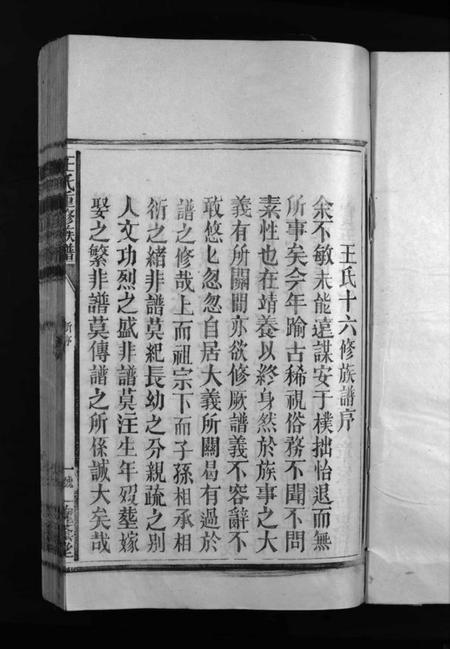 王氏十六修族譜序
余不敏未能遠謀安于樸拙怡退而無
所事矣今年踰古稀視俗務不聞不問
素性也在靖養以終身然於族事之大
義有所關間亦欲修厥譜義不容辭不
敢悠匕忽忽自居大義所關曷有過於
譜之修哉上而祖宗下而子孫相承相
衍之緒非譜莫紀長幼之分親疏之别
人文功烈之盛非譜莫注生年歿塟嫁
娶之繁非譜莫傳譜之所係誠大矣哉
王氏重修族譜
新序